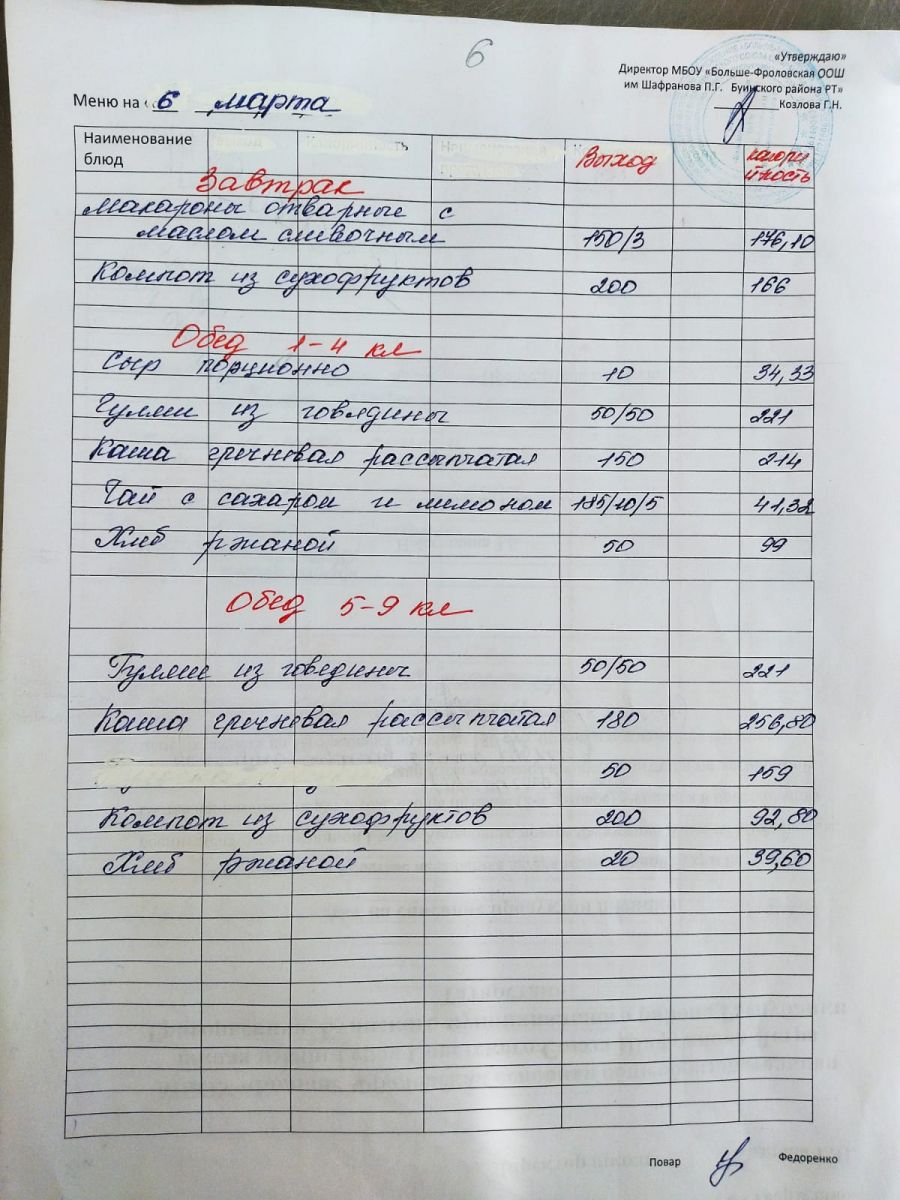 6
«Утверждаю»
Директор МБОУ «Больше-Фроловская ООШ
им Шафранова П.Г. Буинского района РТ»
Козлова Г.Н.
Меню на « 6 марта
Наименование блюд Выход калорийность
Завтрак
Макароны отварные с
маслом сливочным 150/3 176,10
Компот из сухофруктов 200 166
Обед 1-4 кл
Сыр порционно 10 34,33
Гуляш из говядины 50/50 221
Каша гречневая рассыпчатая 150 214
Чай с сахаром и лимоном 185/10/5 41,32
Хлеб ржаной 50 99
Обед 5-9 кл
Гуляш из говедины 50/50 221
Каша гречневая рассыпчатая 180 256,80
50 159
Компот из сухофруктов 200 92,80
Хлеб ржаной 20 39,60
Повар Федоренко